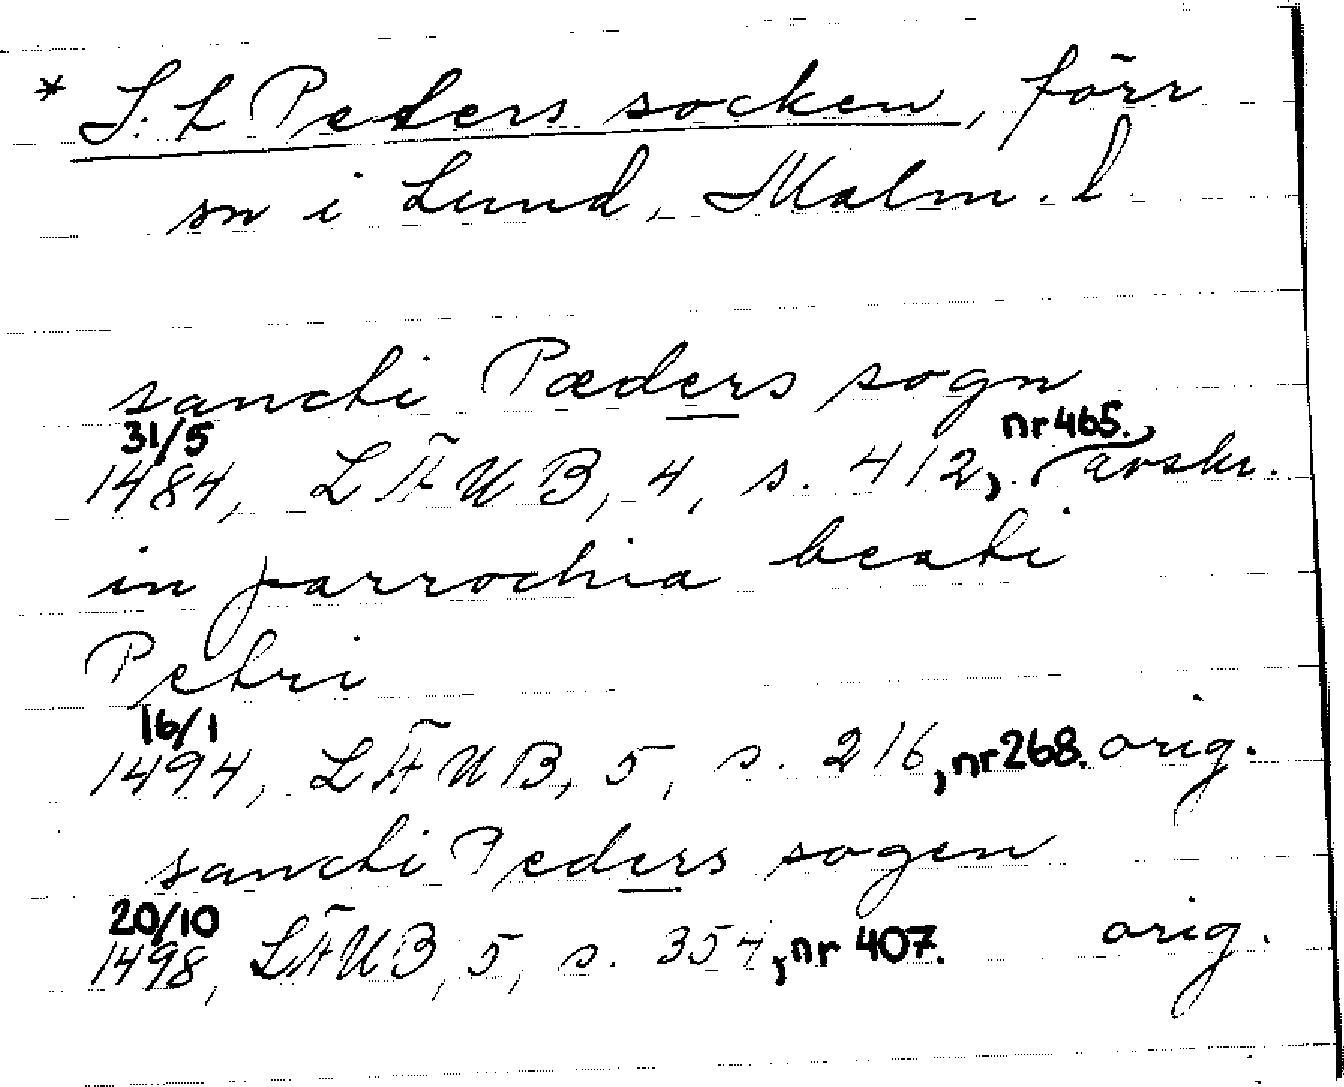 * S:t Peders socken, förr
sn i Lund, Malm. l.
sancti Pæders sogn
31/5 nr 465.
1484, LÄUB, 4, s. 412, avskr.
in parrochia beati
Petri
16/1
1494, LÄUB, 5, s. 216, nr 268. orig.
sancti Peders sogen
20/10
1498, LÄUB, 5, s. 354, nr 407. orig.